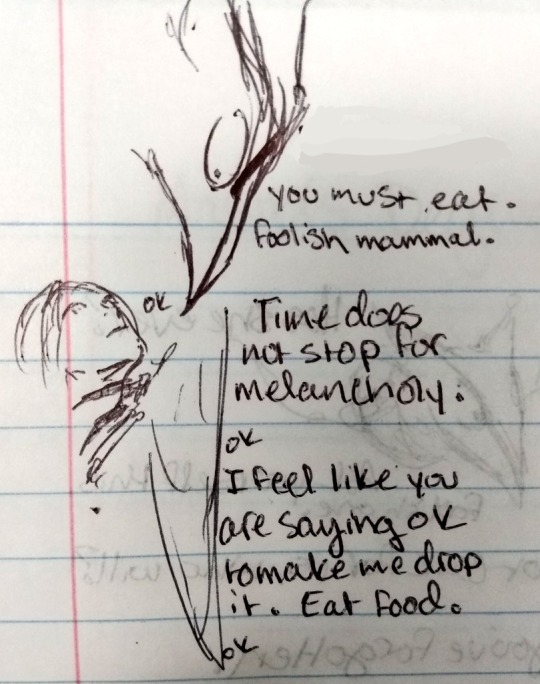 you must eat.
foolish mammal.
ok
Time does
not stop for
melancholy.
ok
I feel like you
are saying ok
to make me drop
it. Eat food.
ok